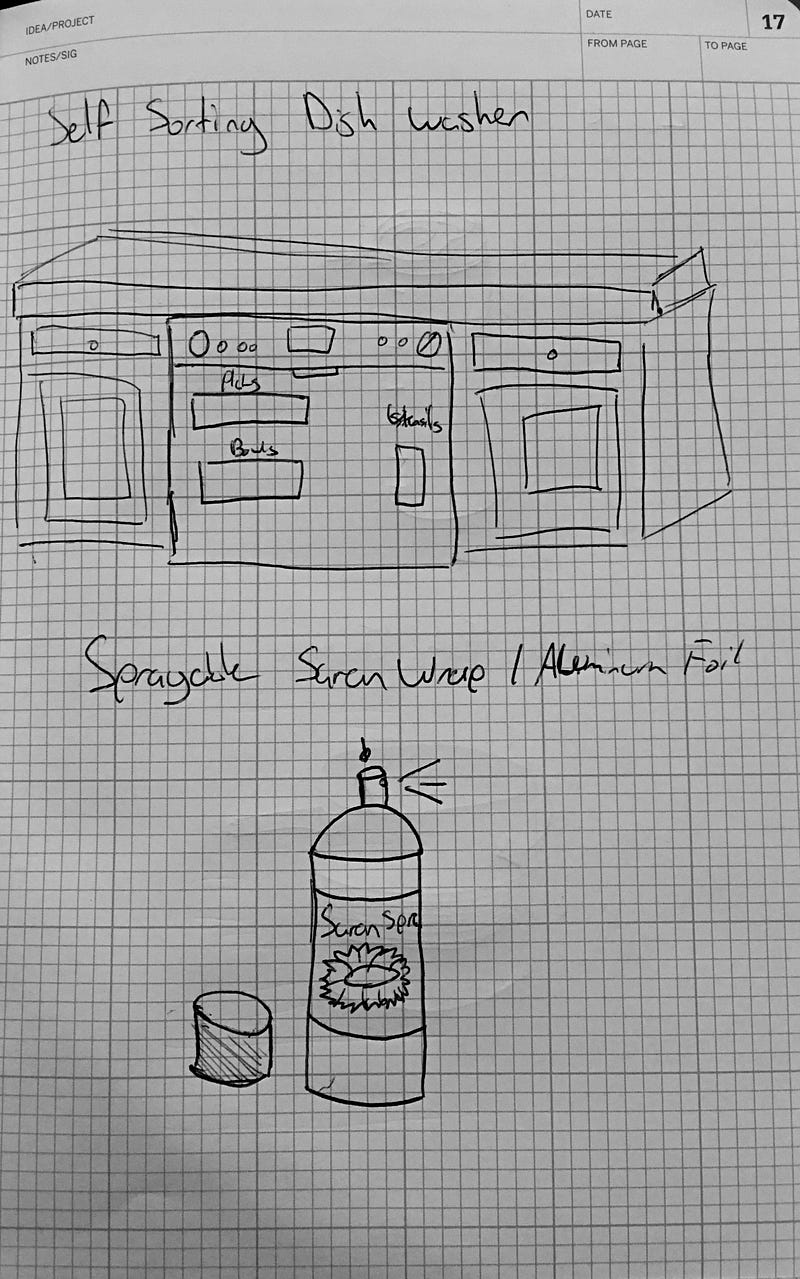 IDEA/PROJECT
DATE
17
NOTES/SIG
FROM PAGE
TO PAGE
Self Sorting Dish washer
Bowls
Sprayable Saran Wrap / Aluminum Foil
Saran Spra